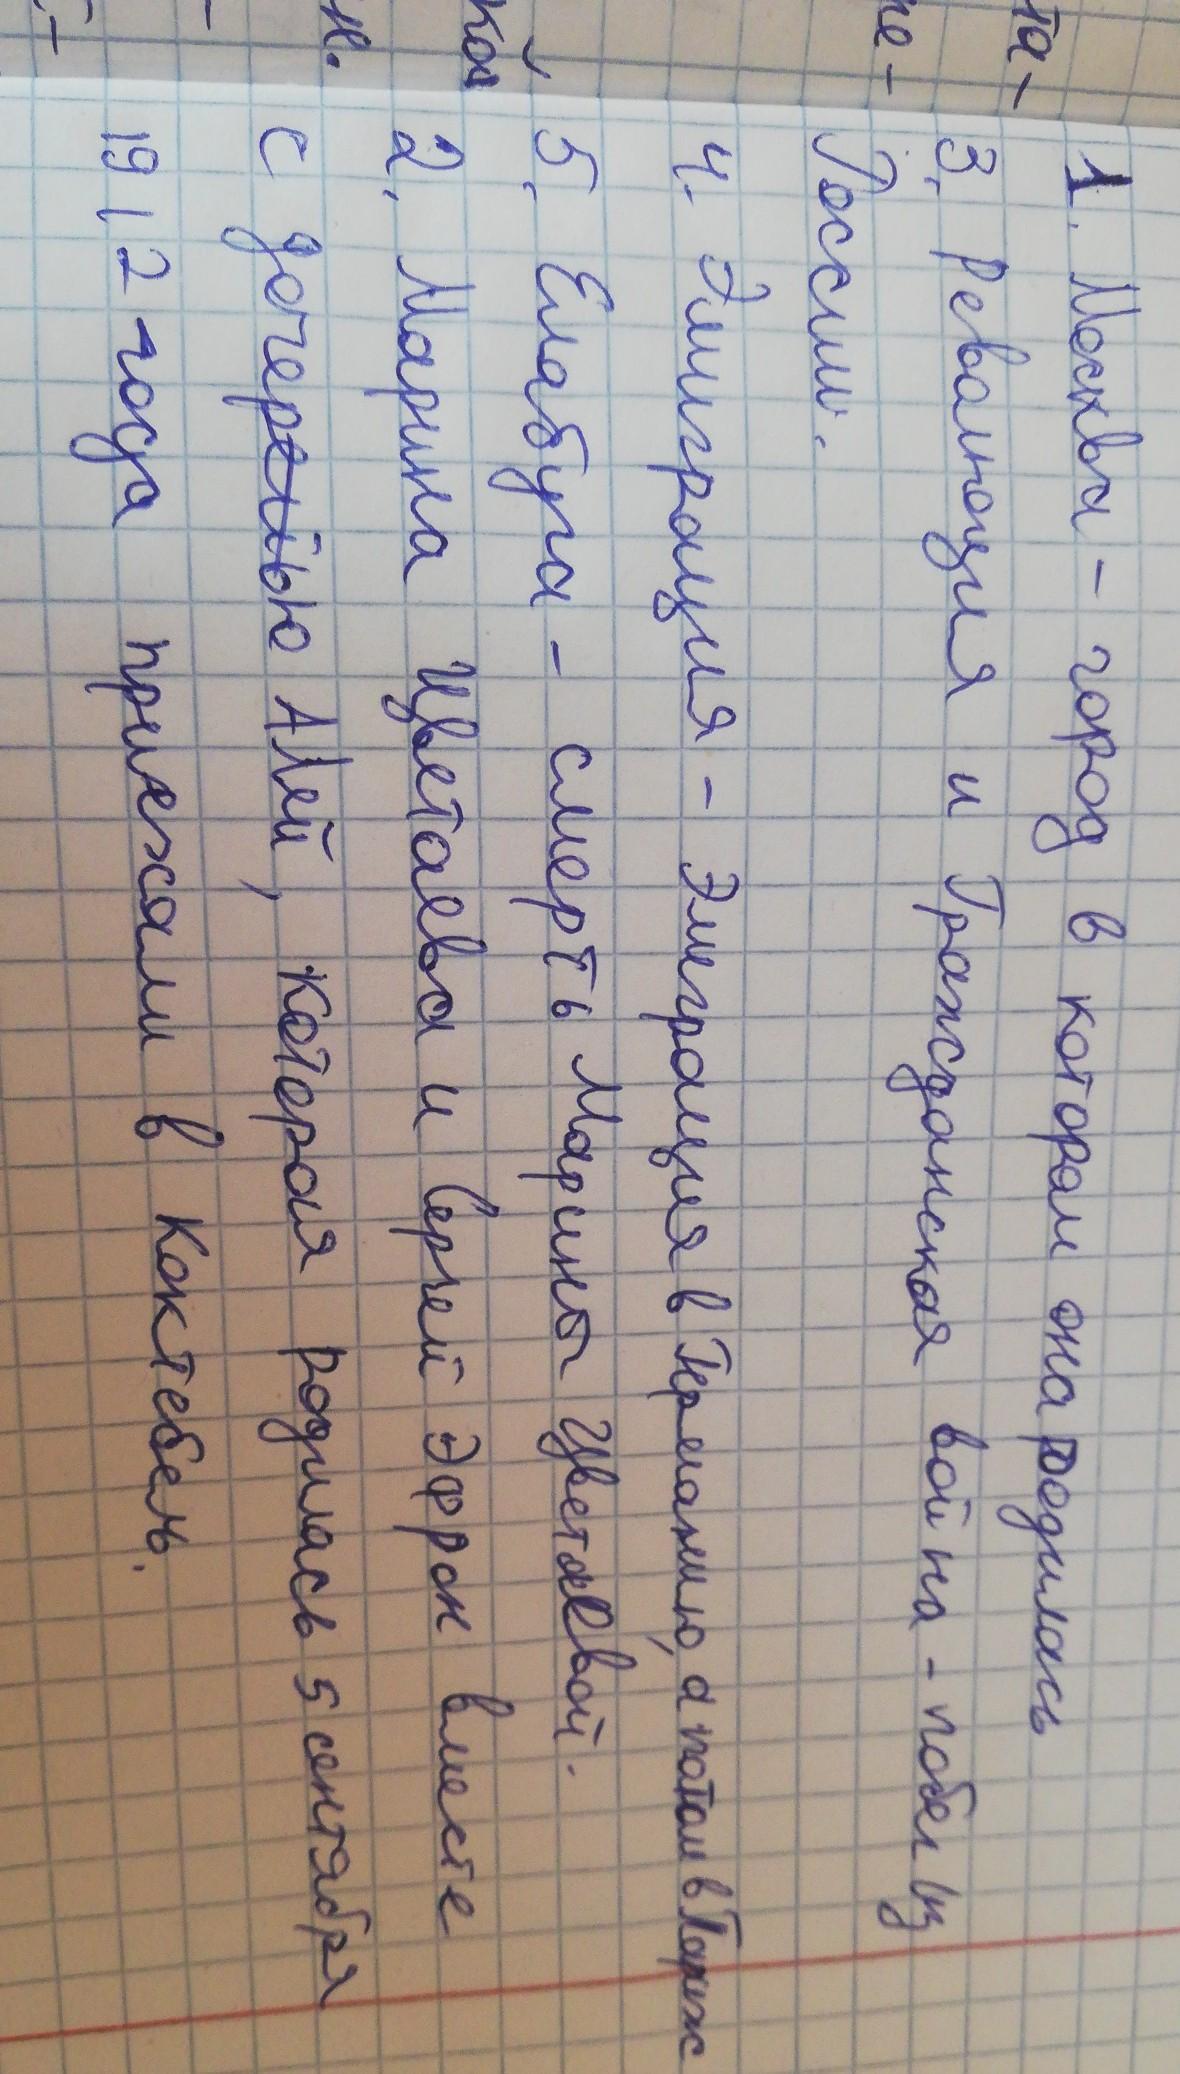 1. Москва - город в котором она родилась
3. Революция и Гражданская война - побег из
России.
4. Эмиграция - Эмиграция в Германию, а потом в Париж
5. Елабуга - смерть Марины Цветаевой.
2. Марина Цветаева и Сергей Эфрон вместе
с дочерью Алей, которая родилась 5 сентября
1912 года приезжали в Коктебель.